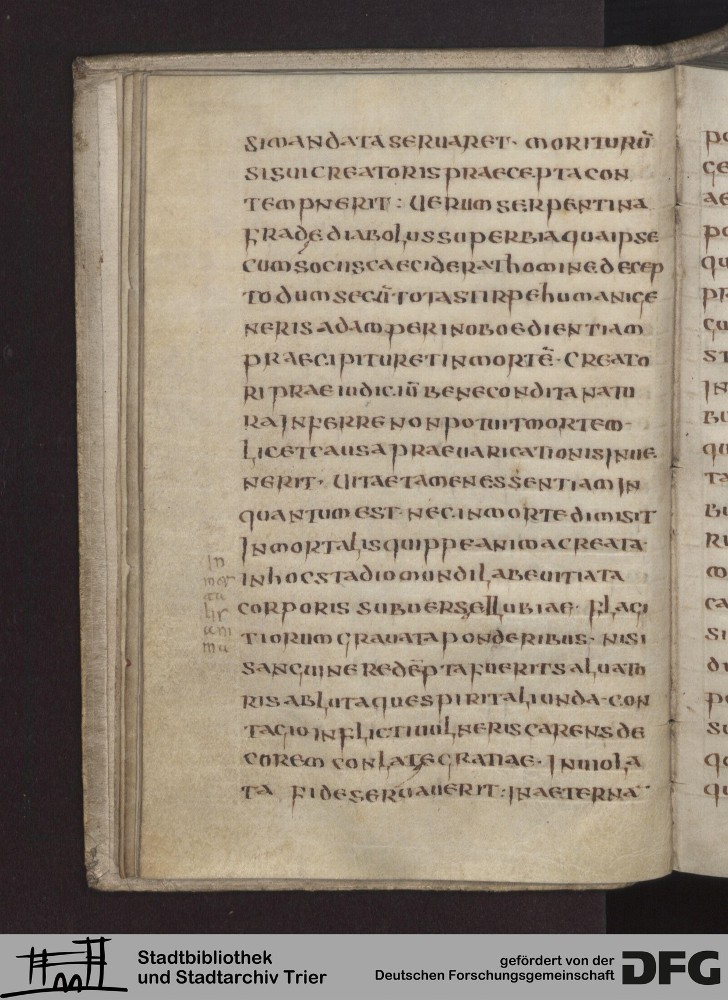 SIMANDATASERUARET · MORITURŪ
SISUICREATORISPRAECEPTACON
TEMPNERIT : UERUMSERPENTINA
FRADEDIABOLUSSUPERBIAQUAIPSE
CUMSOCIISCAECIDERAThOMINEDECEP
TODUMSECŪTOTASTIRPEhUMANIGE
NERISADAMPERINOBOEDIENTIAM
PRAECIPITURETINMORTĒ · CREATO
RIPRAEIUDICIŪBENECONDITANATU
RAINFERRENONPOTUITMORTEM ·
LICETCAUSAPRAEUARICATIONISINUE
NERIT · UITAETAMENESSENTIAMIN
QUANTUMEST · NECINMORTEDIMISIT
INMORTALISQUIPPEANIMACREATA ·
INhOCSTADIOMUNDILABEUITIATA
CORPORIS SUBUERSELLUBIAE · FLAGI
TIORUMGRAUATAPONDERIBUS · NISI
SANGUINEREDĒPTAFUERITSALUATO
RISABLUTAQUESPIRITALIUNDA · CON
TAGIOINFLICTIUULNERISCARENSDE
COREMCONLATEGRATIAE · INUIOLA
TA FIDESERUAUERIT : INAETERNA
In
mor
ta
ani
PO
AE
PO
QU
PR
CU
ST
IN
BU
QU
TA
BU
M
CA
SI
PO
SU
QU
Stadtbibliothek
und Stadtarchiv Trier
gefördert von der
Deutschen Forschungsgemeinschaft
DFG